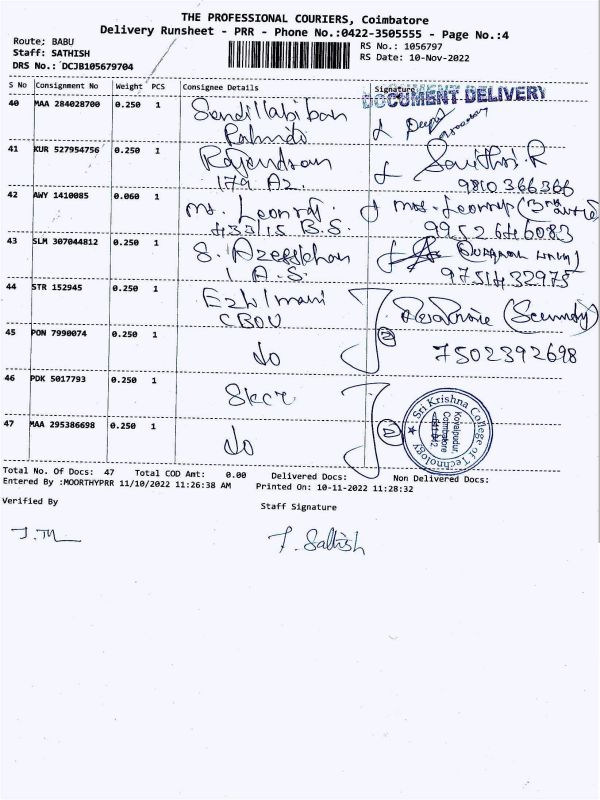 THE PROFESSIONAL COURIERS, Coimbatore
Delivery Runsheet - PRR - Phone No.:0422-3505555 - Page No.:4
Route; BABU
Staff: SATHISH
DRS No.: DCJB105679704
RS No.: 1056797
RS Date: 10-Nov-2022
S No Consignment No Weight PCS Consignee Details Signature
DOCUMENT DELIVERY
40 MAA 284028700 0.250 1
41 KUR 527954756 0.250 1 Rajendran Savithri.R
179 Az. 9810366366
42 AWY 1410085 0.060 1
433/15 B.S. 9952646083
43 SLM 307044812 0.250 1
1 A.S. 9751432975
44 STR 152945 0.250 1 Ezhilmani (Security)
CBOU
45 PON 7990074 0.250 1 do 2 7502392698
46 PDK 5017793 0.250 1 Skct
Sri Krishna College of Technology
Kovaipudur,
Coimbatore
47 MAA 295386698 0.250 1 do
Total No. Of Docs: 47 Total COD Amt: 0.00 Delivered Docs: Non Delivered Docs:
Entered By :MOORTHYPRR 11/10/2022 11:26:38 AM Printed On: 10-11-2022 11:28:32
Verified By
Staff Signature
T. Sathish